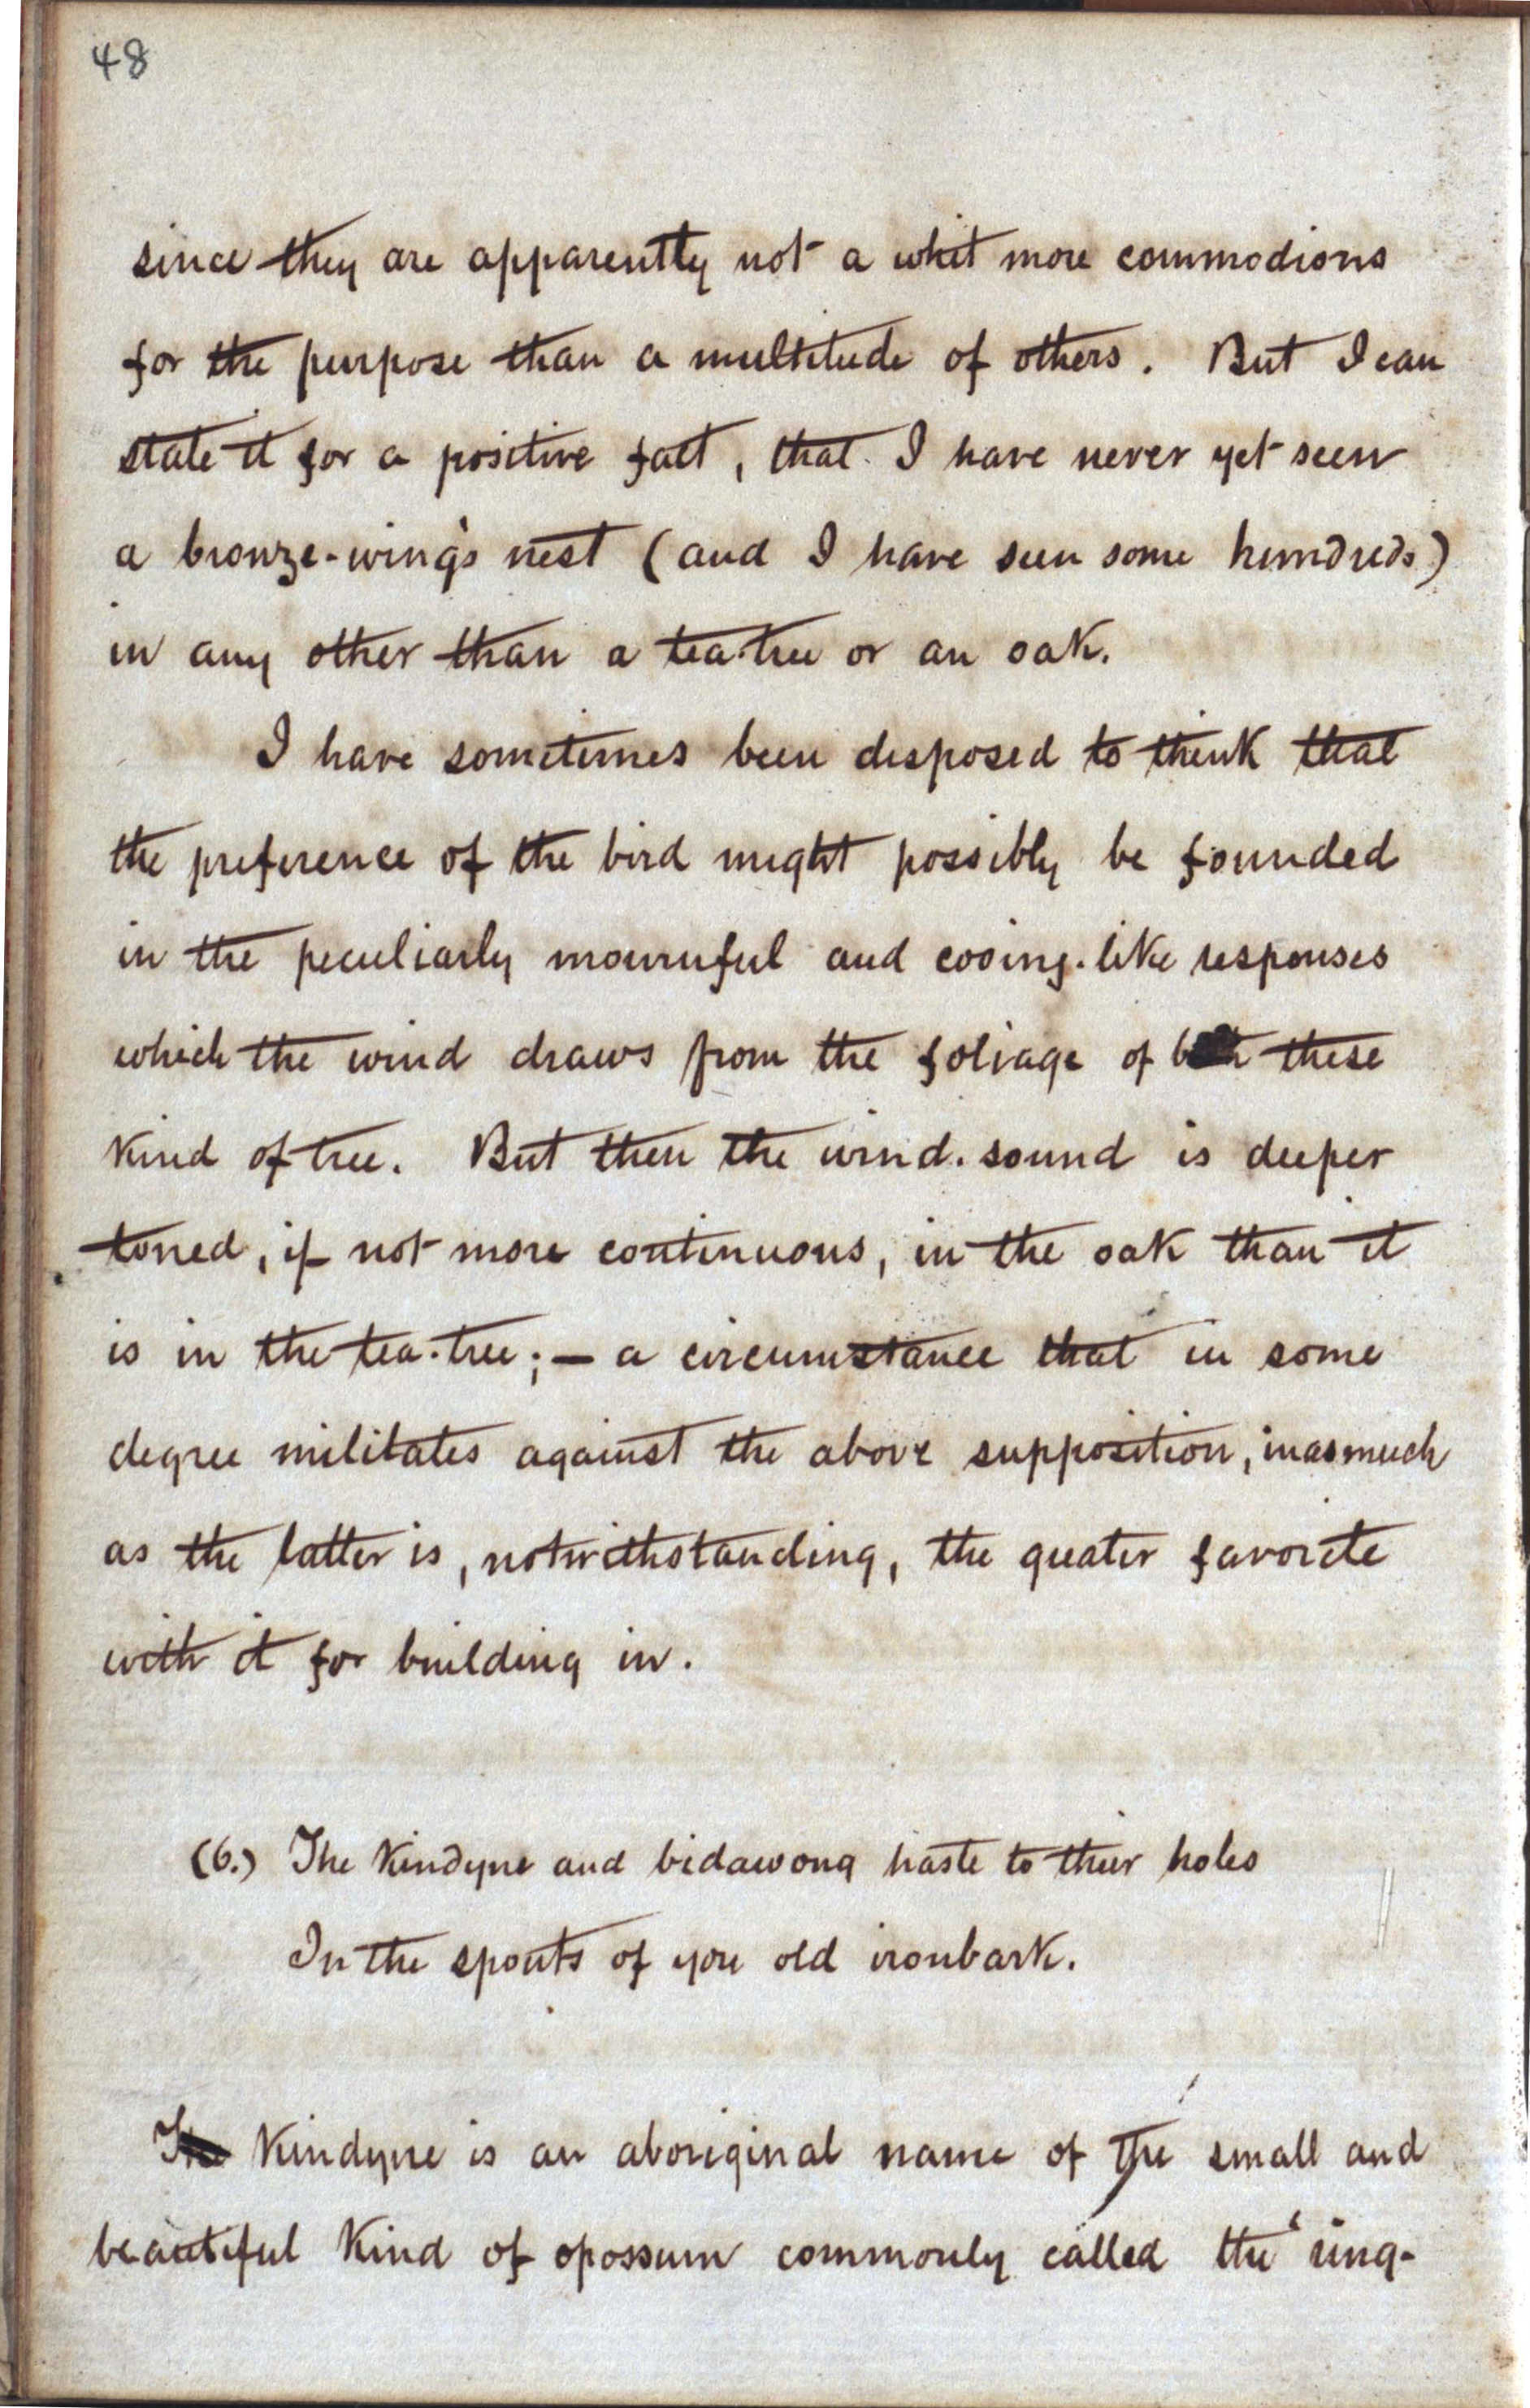 48
since they are apparently not a whit more commodious
for the purpose than a multitude of others. But I can
state it for a positive fact, that I have never yet seen
a bronze-wing's nest (and I have seen some hundreds)
in any other than a tea-tree or an oak.
I have sometimes been disposed to think that
the preference of the bird might possibly be founded
in the peculiarly mournful and cooing-like responses
which the wind draws from the foliage of both these
kind of tree. But then the wind-sound is deeper
toned, if not more continuous, in the oak than it
is in the tea-tree; — a circumstance that in some
degree militates against the above supposition, inasmuch
as the latter is, notwithstanding, the greater favorite
with it for building in.
(6.) The Kindyne and bidawong haste to their holes
In the spouts of yon old ironbark.
Kindyne is an aboriginal name of the small and
beautiful kind of opossum commonly called the 'ring-